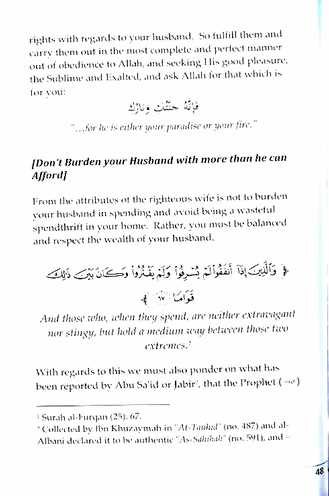 rights with regards to your husband. So fulfill them and
carry them out in the most complete and perfect manner
out of obedience to Allah, and seeking His good pleasure,
the Sublime and Exalted, and ask Allah for that which is
for you:
فَإِنَّهُ جَنَّتُكِ وَنَارُكِ
"…for he is either your paradise or your fire."
[Don't Burden your Husband with more than he can
Afford]
From the attributes of the righteous wife is not to burden
your husband in spending and avoid being a wasteful
spendthrift in your home. Rather, you must be balanced
and respect the wealth of your husband.
﴿ وَالَّذِينَ إِذَا أَنفَقُوا لَمْ يُسْرِفُوا وَلَمْ يَقْتُرُوا وَكَانَ بَيْنَ ذَٰلِكَ
قَوَامًا ٦٧ ﴾
And those who, when they spend, are neither extravagant
nor stingy, but hold a medium way between those two
extremes.
With regards to this we must also ponder on what has
been reported by Abu Sa'id or Jabir, that the Prophet (ﷺ)
Surah al-Furqan (25), 67.
Collected by Ibn Khuzaymah in "At-Tauhid" (no. 487) and al-
Albani declared it to be authentic "As-Sahihah" (no. 591), and –
48